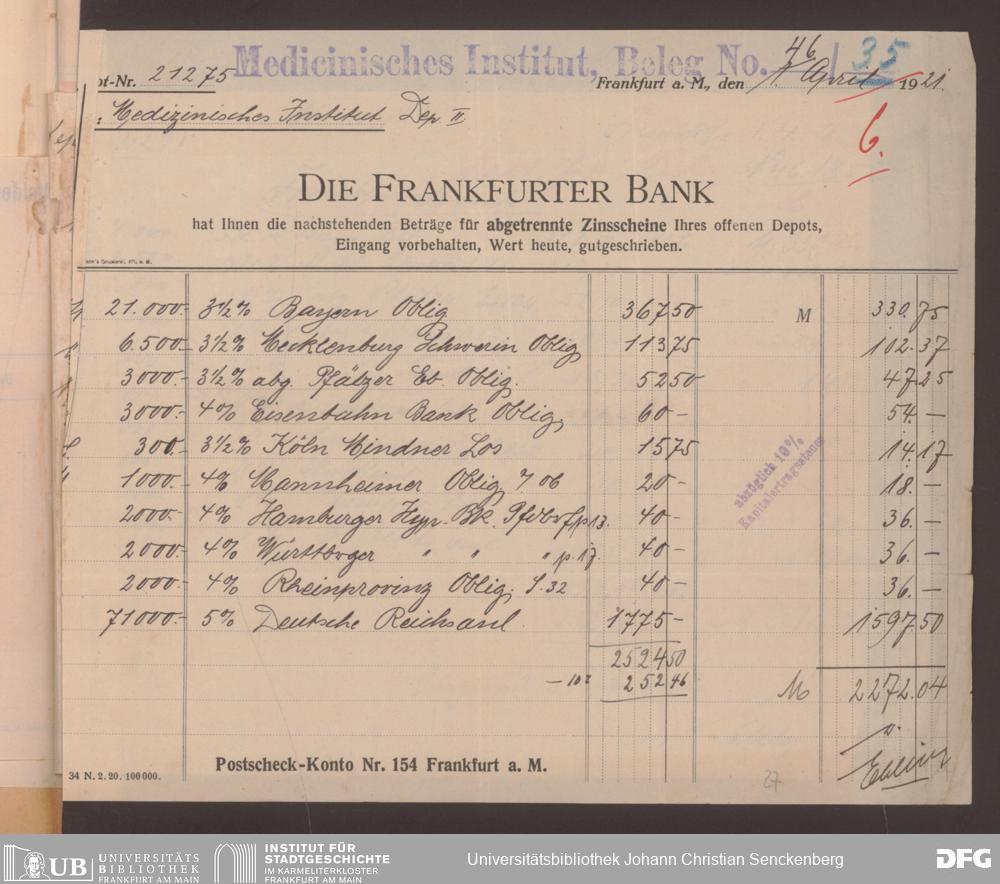 Medicinisches Institut, Beleg No. 46 / 35
ot-Nr. 21275
Frankfurt a. M., den 1. April 1921.
: Medizinisches Institut Dep. II
6.
DIE FRANKFURTER BANK
hat Ihnen die nachstehenden Beträge für abgetrennte Zinsscheine Ihres offenen Depots,
Eingang vorbehalten, Wert heute, gutgeschrieben.
21.000.- 3½% Bayern Oblig 367 50 M 330.75
6.500.- 3½% Mecklenburg Schwerin Oblig 113 75 102.37
3000.- 3½% abg. Pfälzer Eb. Oblig. 52 50 47 25
3000.- 4% Eisenbahn Bank Oblig. 60 - 54. -
300.- 3½% Köln Mindner Los 15 75 14.17
1000.- 4% Mannheimer Oblig. v. 06 20 - 18. -
2000.- 4% Hamburger Hyp. Bk. Pfdbr 40 - 36. -
2000.- 4% Württbrger " " " 40 - 36. -
2000.- 4% Rheinprovinz Oblig. S. 32 40 - 36. -
71000.- 5% Deutsche Reichsanl. 1775 - 1597 50
abzüglich 10%
Kapitalertragssteuer
2524 50
- 10% 252 46 M 2272.04
Postscheck-Konto Nr. 154 Frankfurt a. M.
34 N. 2. 20. 100 000.
27
UB UNIVERSITÄTS
BIBLIOTHEK
FRANKFURT AM MAIN
INSTITUT FÜR
STADTGESCHICHTE
IM KARMELITERKLOSTER
FRANKFURT AM MAIN
Universitätsbibliothek Johann Christian Senckenberg
DFG